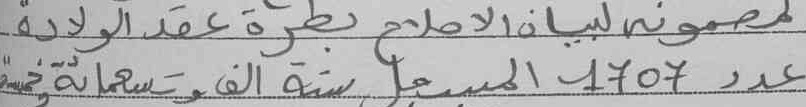 لمضمونه لبيان الاصلاح بطرة عقد الولادة
عدد 1707 المسجل سنة الف وتسعمائة وخمسة